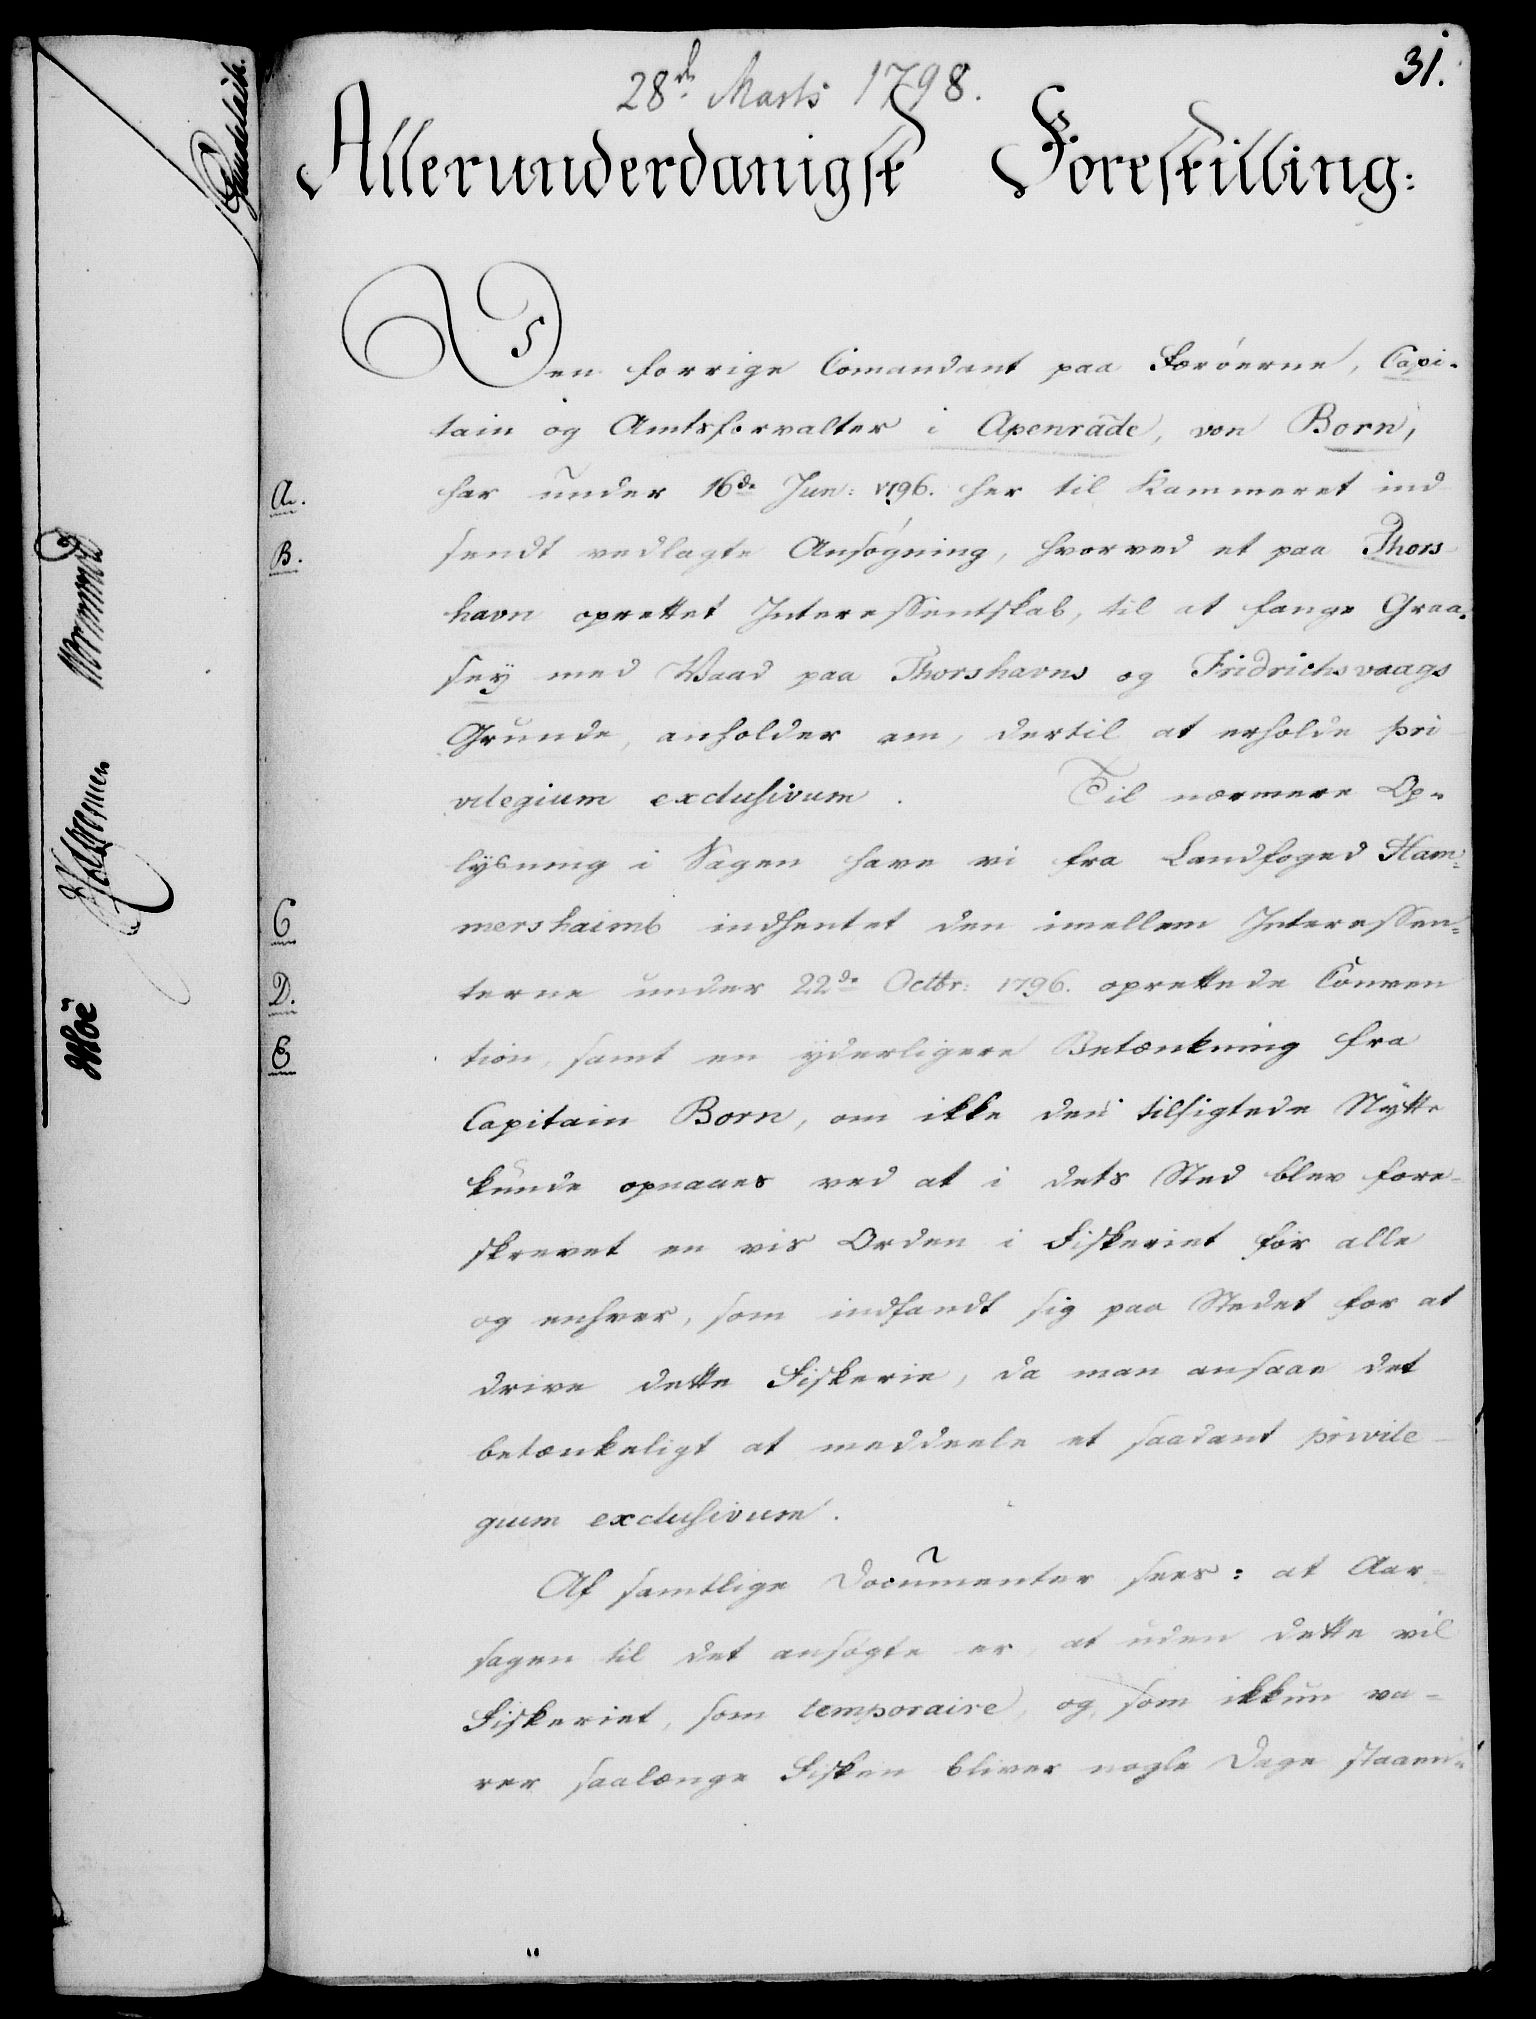 31.
28de Marts 1798.
Allerunderdanigst Forestilling:
Den forrige Comandant paa Færöerne, Capi-
tain og Amtsforvalter i Apenrade, von Born,
A. har under 16de Jun: 1796. her til Kammeret ind
B. sendt vedlagte Ansøgning, hvorved et paa Thors-
havn oprettet Interessentskab, til at fange Graa-
sey med Vaad paa Thorshavns og Fridrichsvaags
Grunde, anholder om, dertil at erholde pri-
vilegium exclusivum. Til nærmere Op-
lysning i Sagen have vi fra Landfoged Ham-
C mershaimb indhentet den imellem Interessen-
D. terne under 22de Octbr: 1796. oprettede Conven
E tion, samt en yderligere Betænkning fra
Capitain Born, om ikke den tilsigtede Nytte
kunde opnaaes ved at i dets Sted blev fore-
skrevet en vis Orden i Fiskeriet for alle
og enhver, som indfandt sig paa Stedet for at
drive dette Fiskerie, da man ansaae det
betænkeligt at meddeele et saadant privile-
gium exclusivum.
Af samtlige Documenter sees: at Aar-
sagen til det ansøgte er, at uden dette vil
Fiskeriet, som temporaire, og som ikkun va-
rer saalænge Fisken bliver nogle Dage staaen-